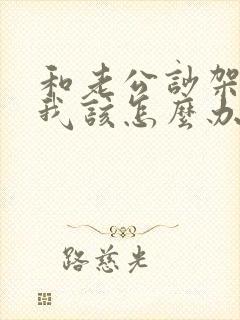 和老公訪架
我該怎麼办
路慈光